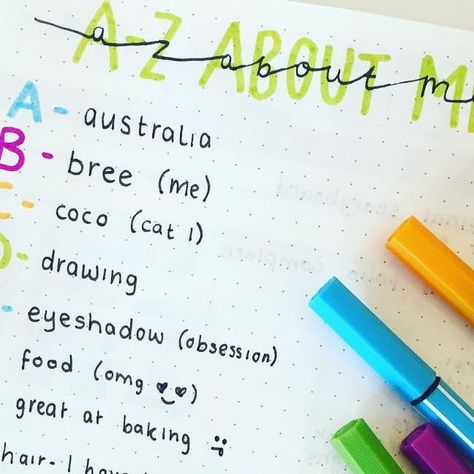 A-Z ABOUT M
a z about m
A - australia
B - bree (me)
C - coco (cat 1)
D - drawing
- eyeshadow (obsession)
food (omg
great at baking
hair - I have